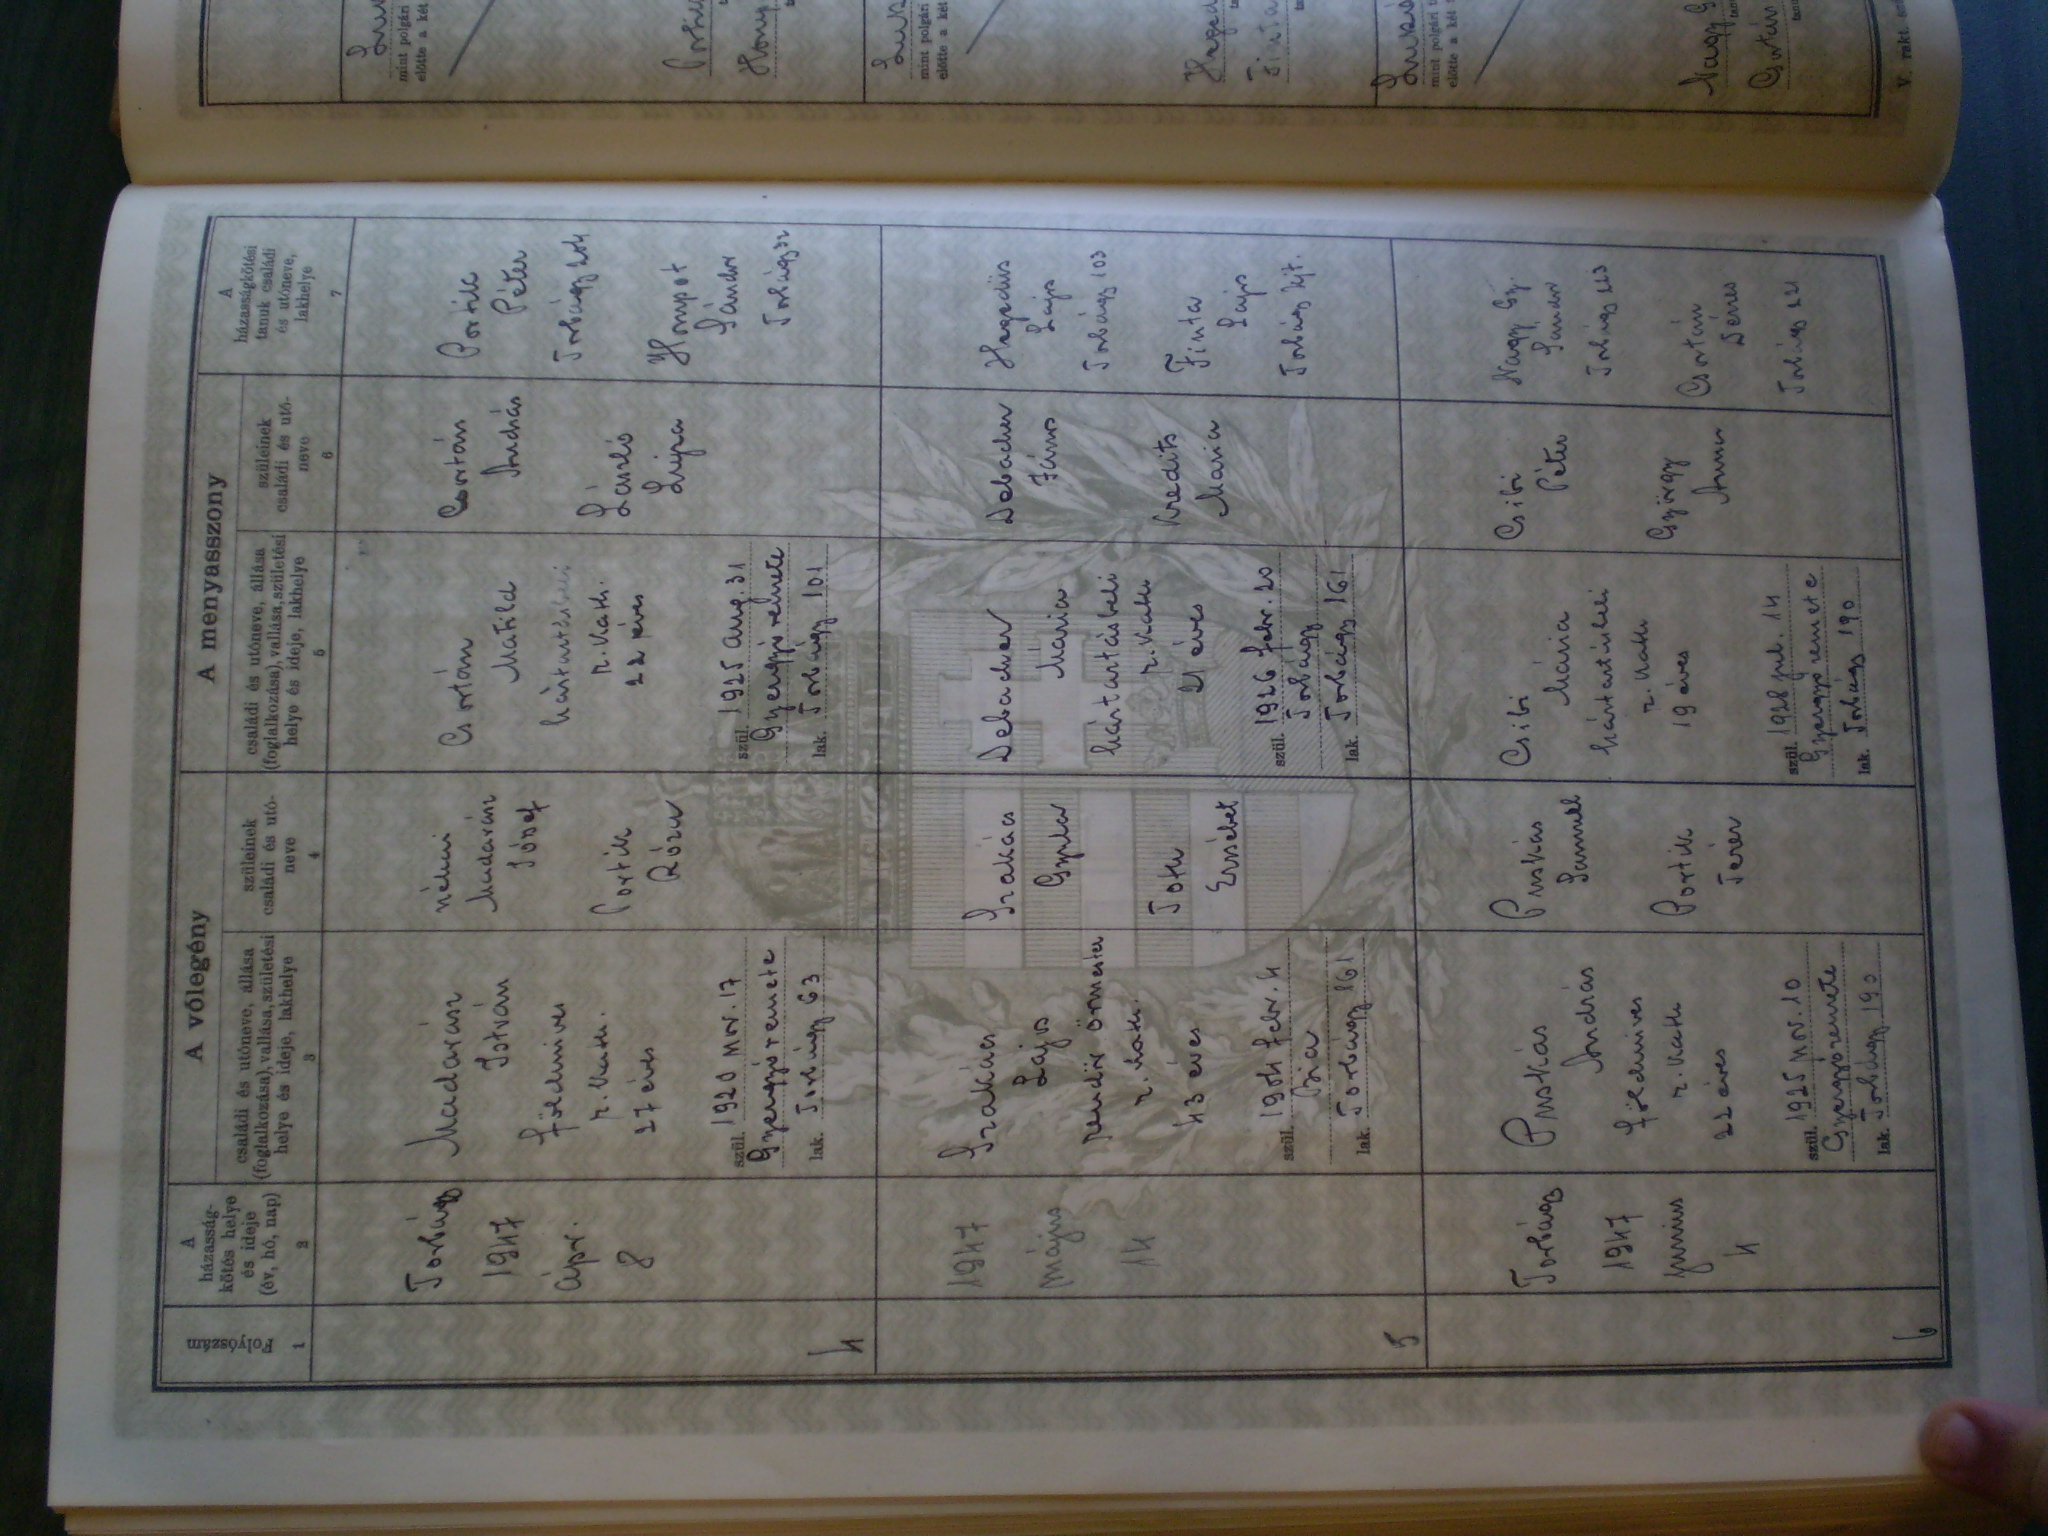 A vőlegény
A menyasszony
Folyószám
1
A
házasság-
kötés helye
és ideje
(év, hó, nap)
2
családi és utóneve, állása
(foglalkozása), vallása, születési
helye és ideje, lakhelye
3
szüleinek
családi és utó-
neve
4
családi és utóneve, állása
(foglalkozása), vallása, születési
helye és ideje, lakhelye
5
szüleinek
családi és utó-
neve
6
A
házasságkötési
tanuk családi
és utóneve,
lakhelye
7
4
Torbágy
1947
Ápr.
8
Madarász
István
földmives
r. kath.
27 éves
szül. 1920 nov. 17
Gyergyóremete
lak. Torbágy 63
néhai
Madarász
József
Portik
Róza
Csortán
Matild
háztartásbeli
r. kath.
22 éves
szül. 1925 aug. 31
Gyergyóremete
lak. Torbágy 101
Csortán
András
László
Lujza
Portik
Péter
Torbágy 204
Hompot
Sándor
Torbágy 32
5
1947
május
14
Szakács
Lajos
rendőr őrmester
r. kath.
43 éves
szül. 1904 febr. 4
Bia
lak. Torbágy 161
Szakács
Gyula
Toth
Erzsébet
Debacher
Mária
háztartásbeli
r. kath
21 éves
szül. 1926 febr. 20
Torbágy
lak. Torbágy 161
Debacher
János
Kredits
Maria
Hegedüs
Lajos
Torbágy 103
Finta
Lajos
Torbágy
6
Torbágy
1947
junius
4
Puskás
András
földmives
r. kath
22 éves
szül. 1925 nov. 10
Gyergyóremete
lak. Torbágy 190
Puskás
Samuel
Portik
Teréz
Csibi
Mária
háztartásbeli
r. kath
19 éves
szül. 1928 jul. 14
Gyergyóremete
lak. Torbágy 190
Csibi
Péter
György
Anna
Nagy Gy.
Sándor
Torbágy 223
Csortán
Dénes
Torbágy 221
mint polgári
előtte a két
mint polgári
előtte a két
mint polgári
előtte a két
Nagy G
Csortán
V. rakt.